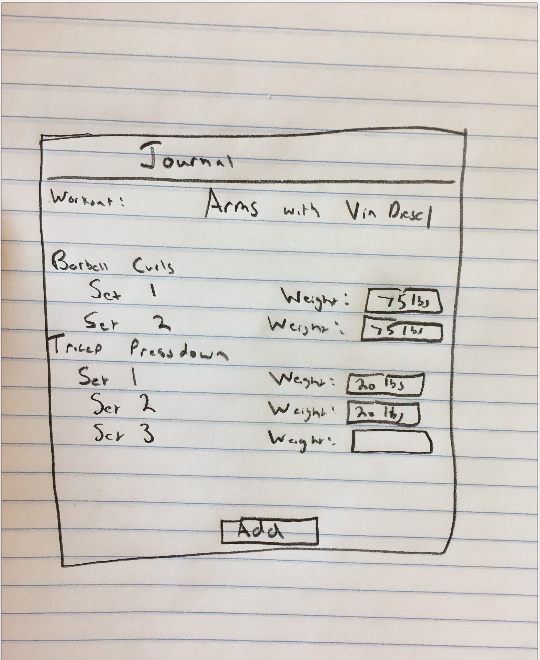 Journal
Workout: Arms with Vin Diesel
Barbell Curls
Set 1 Weight: 75 lbs
Set 2 Weight: 75 lbs
Tricep Pressdown
Set 1 Weight: 20 lbs
Set 2 Weight: 20 lbs
Set 3 Weight:
Add